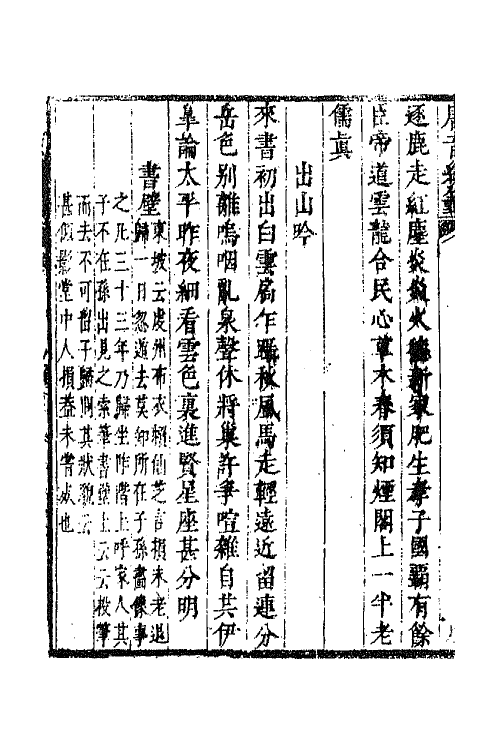 逐鹿走紅塵炎炎火德新家肥生孝子國霸有餘
臣帝道雲龍合民心草木春須知煙閣上一半老
儒真
出山吟
來書初出白雲扃乍躡秋風馬走輕遠近留連分
岳色別離嗚咽亂泉聲休將巢許爭喧雜自共伊
臯論太平昨夜細看雲色裏進賢星座甚分明
書壁
東坡云虔州布衣賴仙芝言損未老退
歸一月忽遁去莫知所在子孫畵像事
之凡三十三年乃歸坐阼階上呼家人其
子不在孫出見之索筆書壁上云云投筆
而去不可留子歸問其狀貌云
甚似影堂中人損益未嘗死也